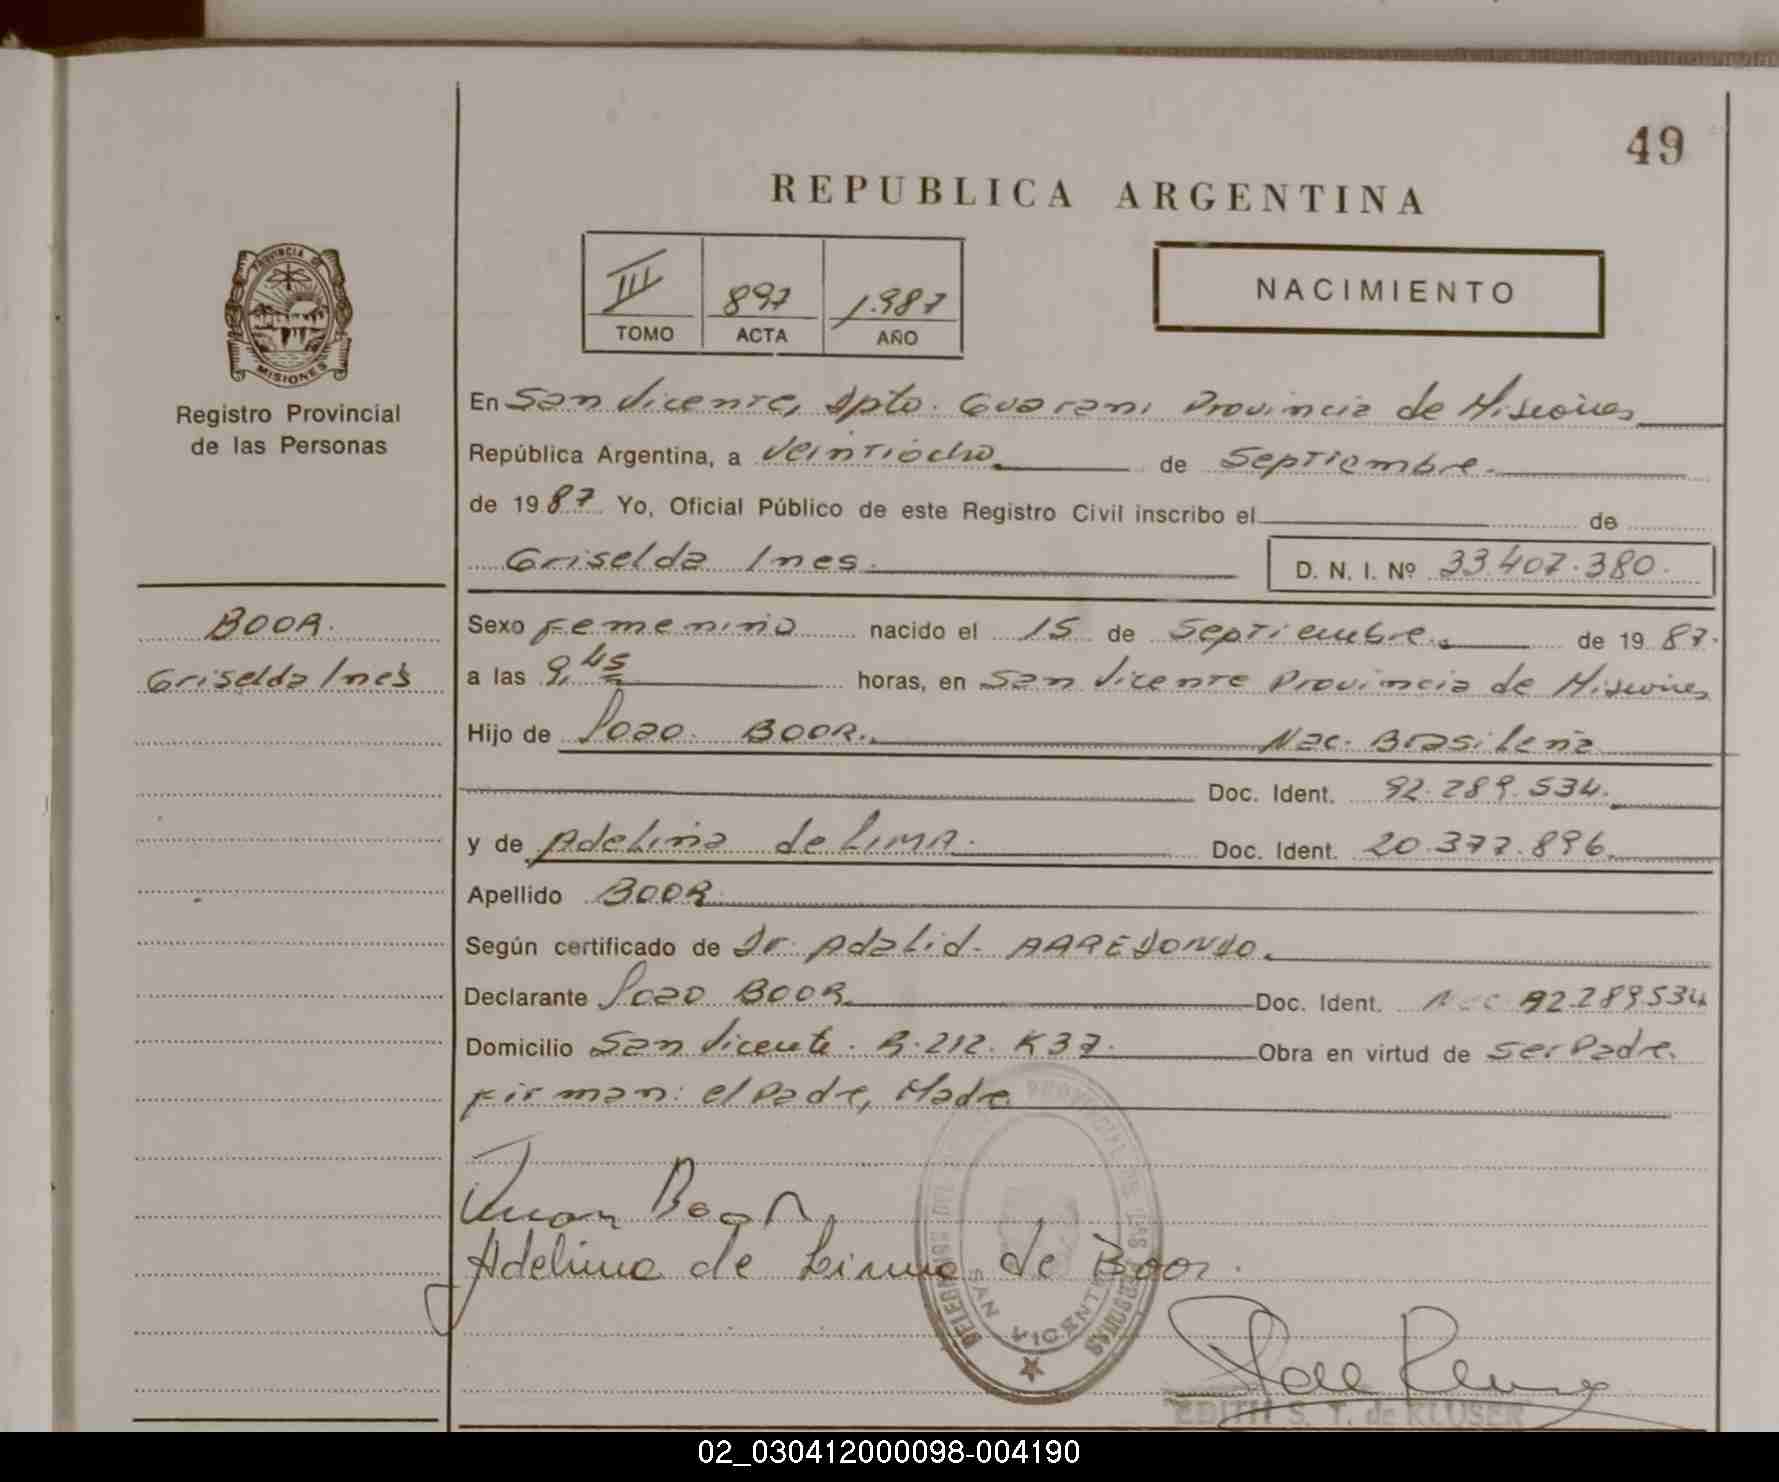 49
REPUBLICA ARGENTINA
III 897 1.987
TOMO ACTA AÑO
NACIMIENTO
PROVINCIA DE
MISIONES
Registro Provincial
de las Personas
En San Vicente, Dpto. Guarani Provincia de Misiones
República Argentina, a Veintiocho de Septiembre.
de 1987 Yo, Oficial Público de este Registro Civil inscribo el de
Griselda Ines.
D. N. I. Nº 33.407.380.
BOOR.
Griselda Inés
Sexo Femenino nacido el 15 de Septiembre. de 1987.
a las 9,45 horas, en San Vicente Provincia de Misiones
Hijo de Joao BOOR. Nac. Brasileña
Doc. Ident. 92.289.534.
y de Adelina de LIMA. Doc. Ident. 20.377.896.
Apellido BOOR
Según certificado de Dr. Adalid ARREDONDO.
Declarante Joao BOOR Doc. Ident. 92.289.534
Domicilio San Vicente. R.212. K37. Obra en virtud de ser Padre.
Firman: el Padre, Madre
Juan Boor
Adelina de Lima de Boor.
DELEGACION DEL PROVINCIAL DE LAS PERSONAS
SAN VICENTE
EDITH S. T. de KLUSER
02_030412000098-004190